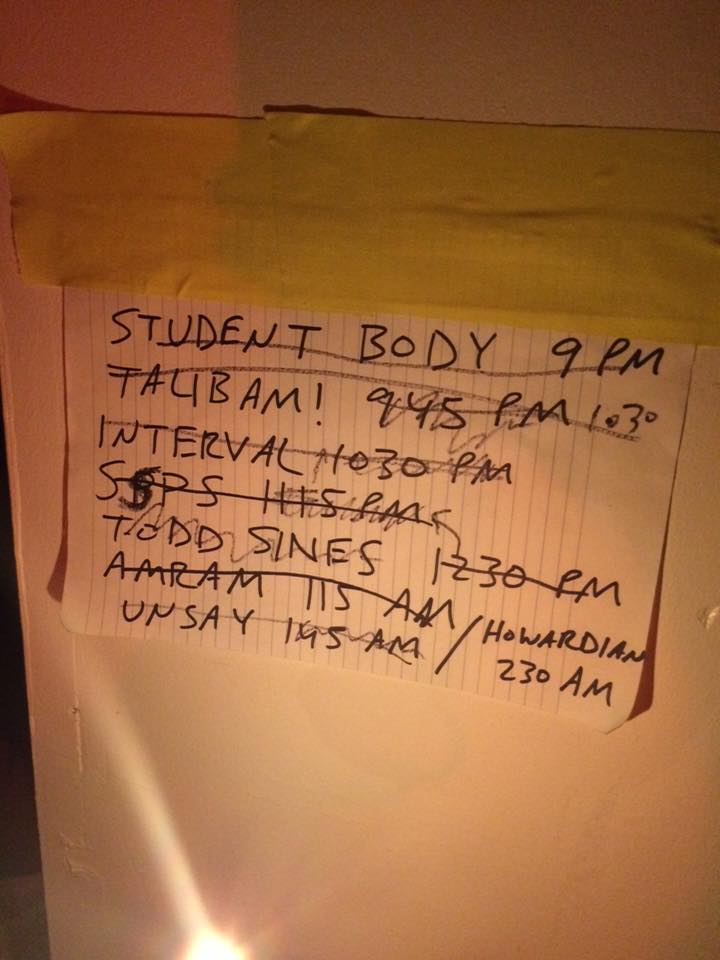 STUDENT BODY 9 PM
TALIBAM! 945 PM 1030
INTERVAL 1030 PM
1115 PM
TODD SINES 1230 PM
AMRAM 115 AM
UNSAY 145 AM / HOWARDIAN
230 AM